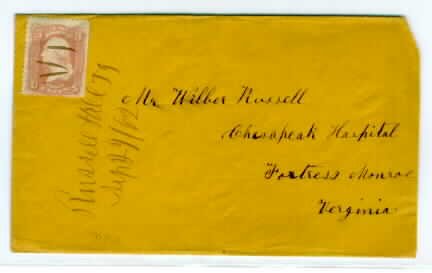 Mr Wilber Russell
Chesapeak Hospital
Fortress Monroe
Verginia
Russell
VI